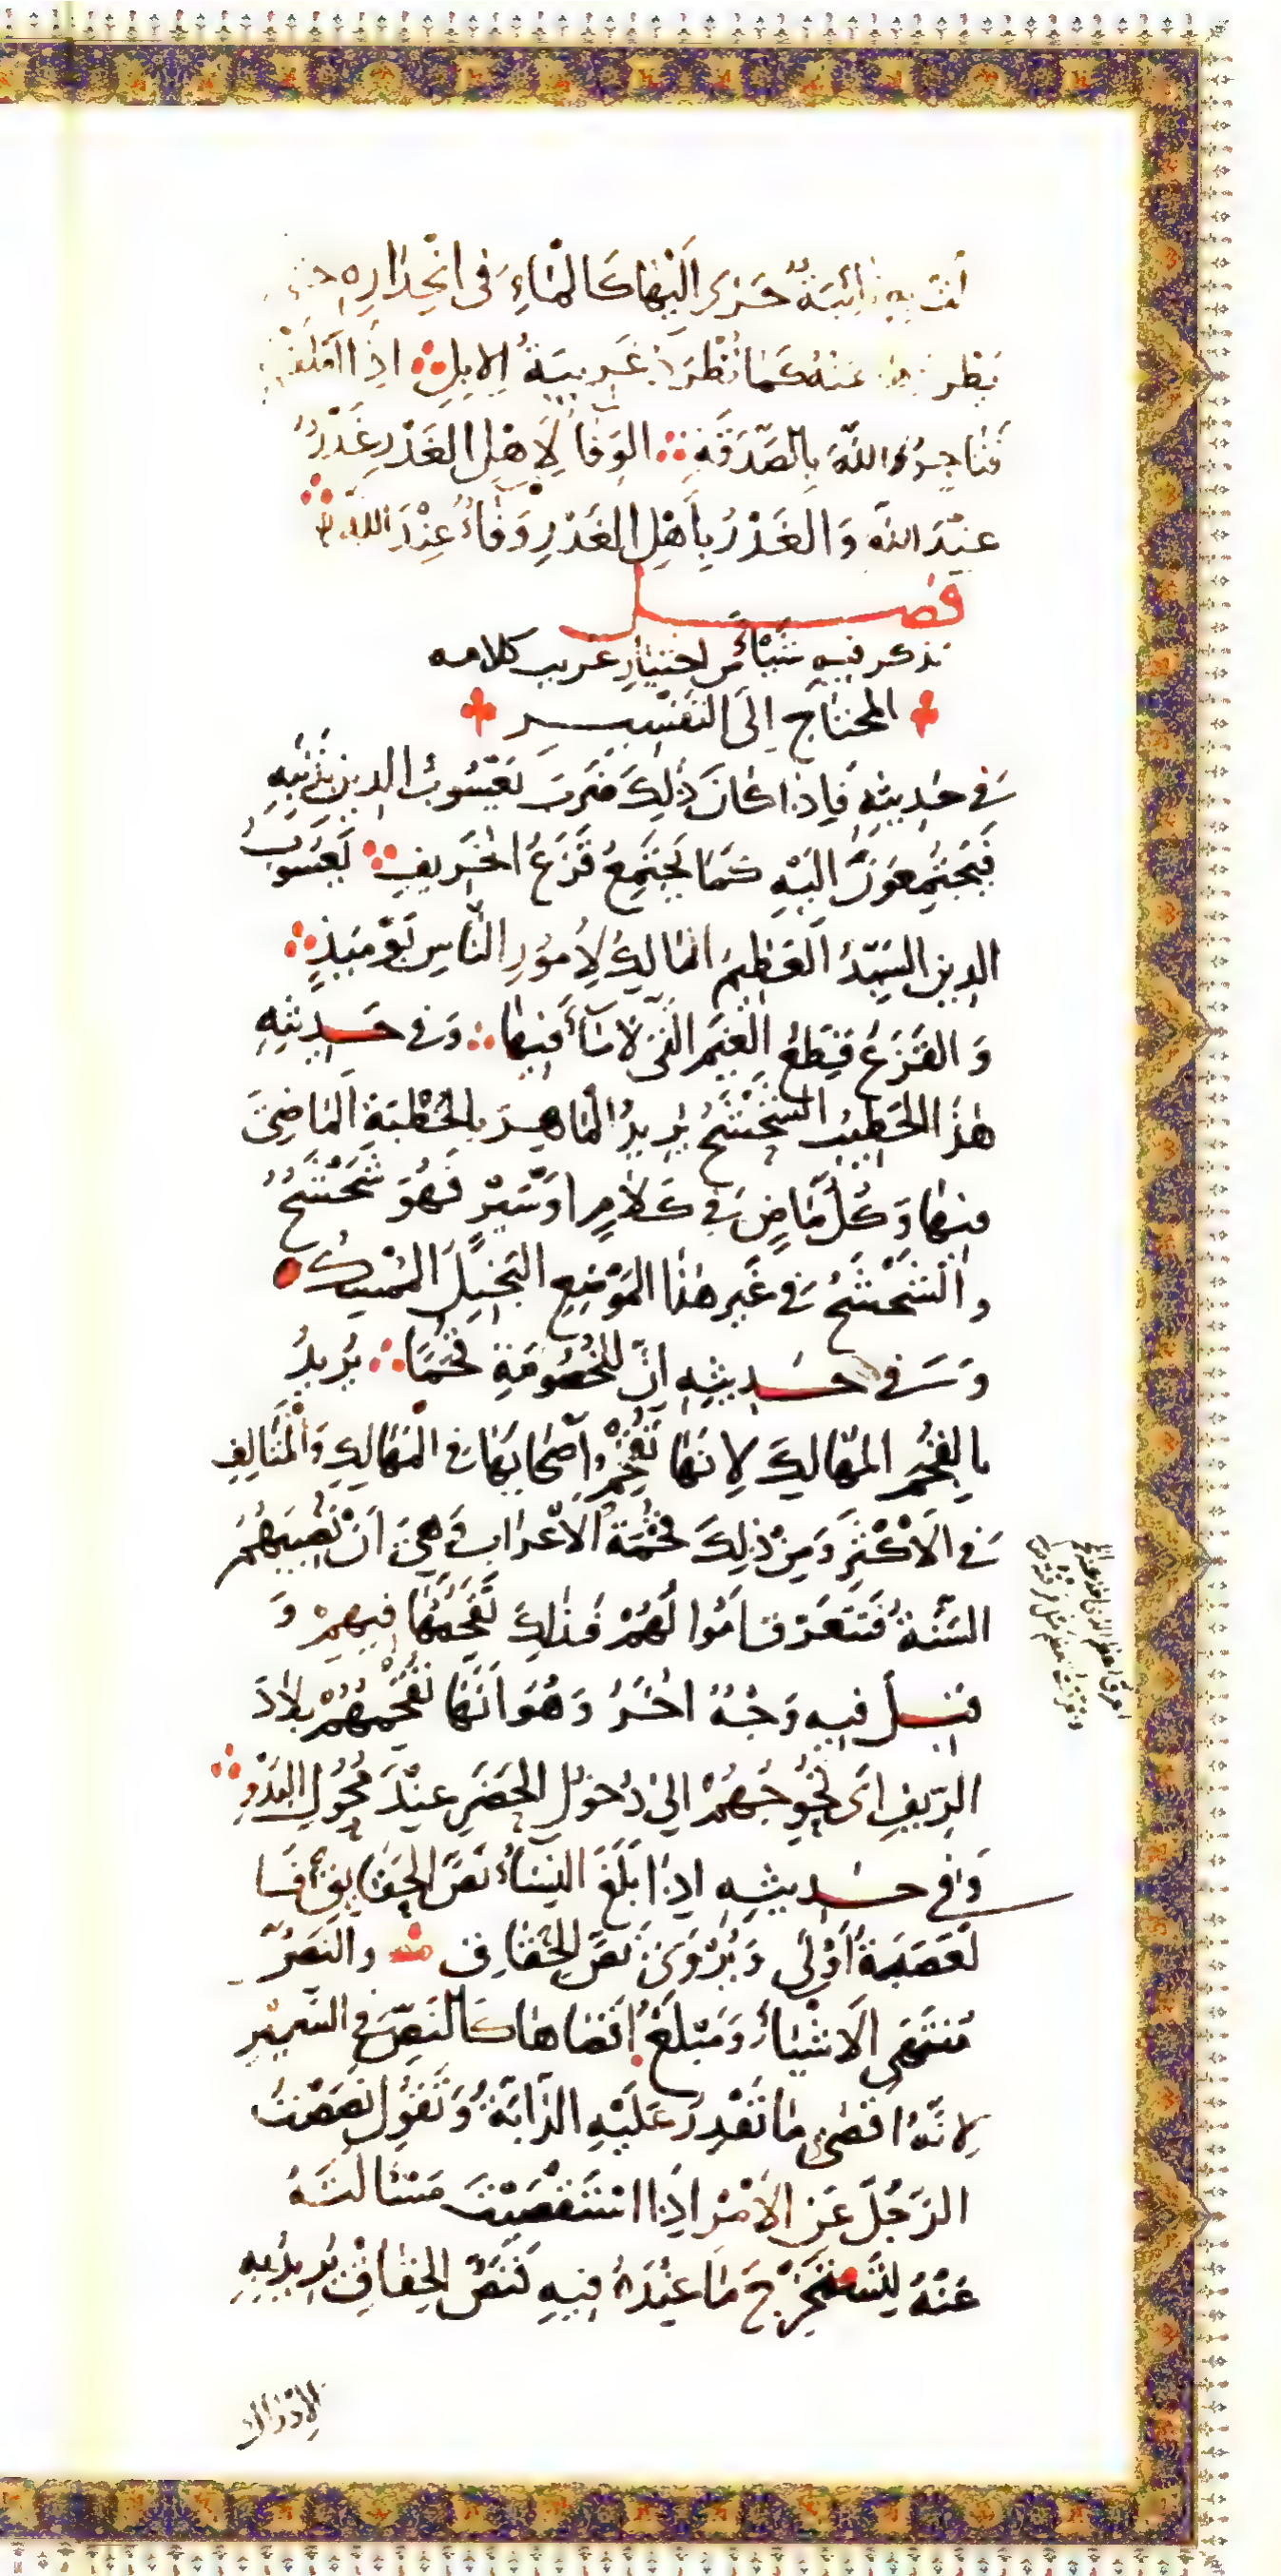 به نائبة جرى إليها كالماء في انحداره حتى
يطر عنه كما تطرد غريبة الإبل إذا أملقتم
فتاجروا الله بالصدقة الوفا لأهل الغدر غدر
عند الله والغدر بأهل الغدر وفاء عند الله
فصل
نذكر فيه شيئا من اختيار غريب كلامه
المحتاج إلى التفسير
في حديثه فإذا كان ذلك ضرب يعسوب الدين بذنبه
فيجتمعون إليه كما يجتمع قزع الخريف يعسوب
الدين السيد العظيم المالك لأمور الناس يومئذ
والقزع قطع الغيم التي لا ماء فيها وفي حديثه
هذا الخطيب الشحشح يريد الماهر بالخطبة الماضي
فيها وكل ماض في كلام أو سير فهو شحشح
والشحشح في غير هذا الموضع البخيل الممسك
وفي حديثه إن للخصومة قحما يريد
بالقحم المهالك لأنها تقحم أصحابها في المهالك والمتالف
في الأكثر ومن ذلك قحمة الأعراب وهي أن تصيبهم
السنة فتتعرق أموالهم فذلك تقحمها فيهم و
قيل فيه وجه آخر وهو أنها تقحمهم بلاد
الريف أي تحوجهم إلى دخول الحضر عند محول البدو
وفي حديثه إذا بلغ النساء نص الحقايق فا
لعصبة أولى ويروى نص الحقاق والنص
منتهى الأشياء ومبلغ أقصاها كالنص في السير
لأنه أقصى ما تقدر عليه الدابة وتقول نصصت
الرجل عن الأمر إذا استقصيت مسئالته
عنه لتستخرج ما عنده فيه فنص الحقاق يريد به
الإدراك